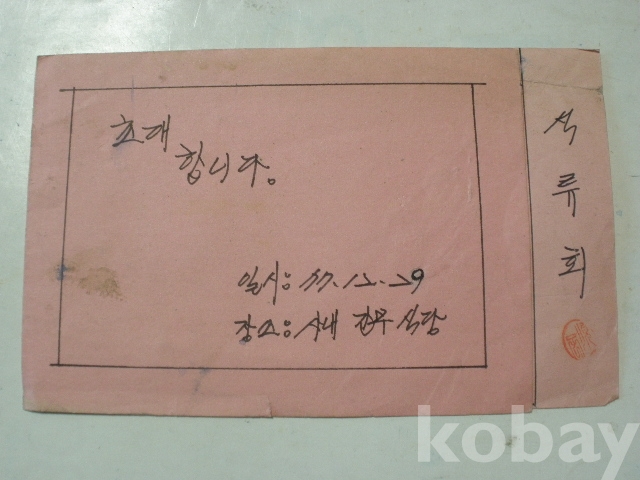 초대
합니다.
일시: 77. 12. 29
장소: 시내 식당
석류회
kobay